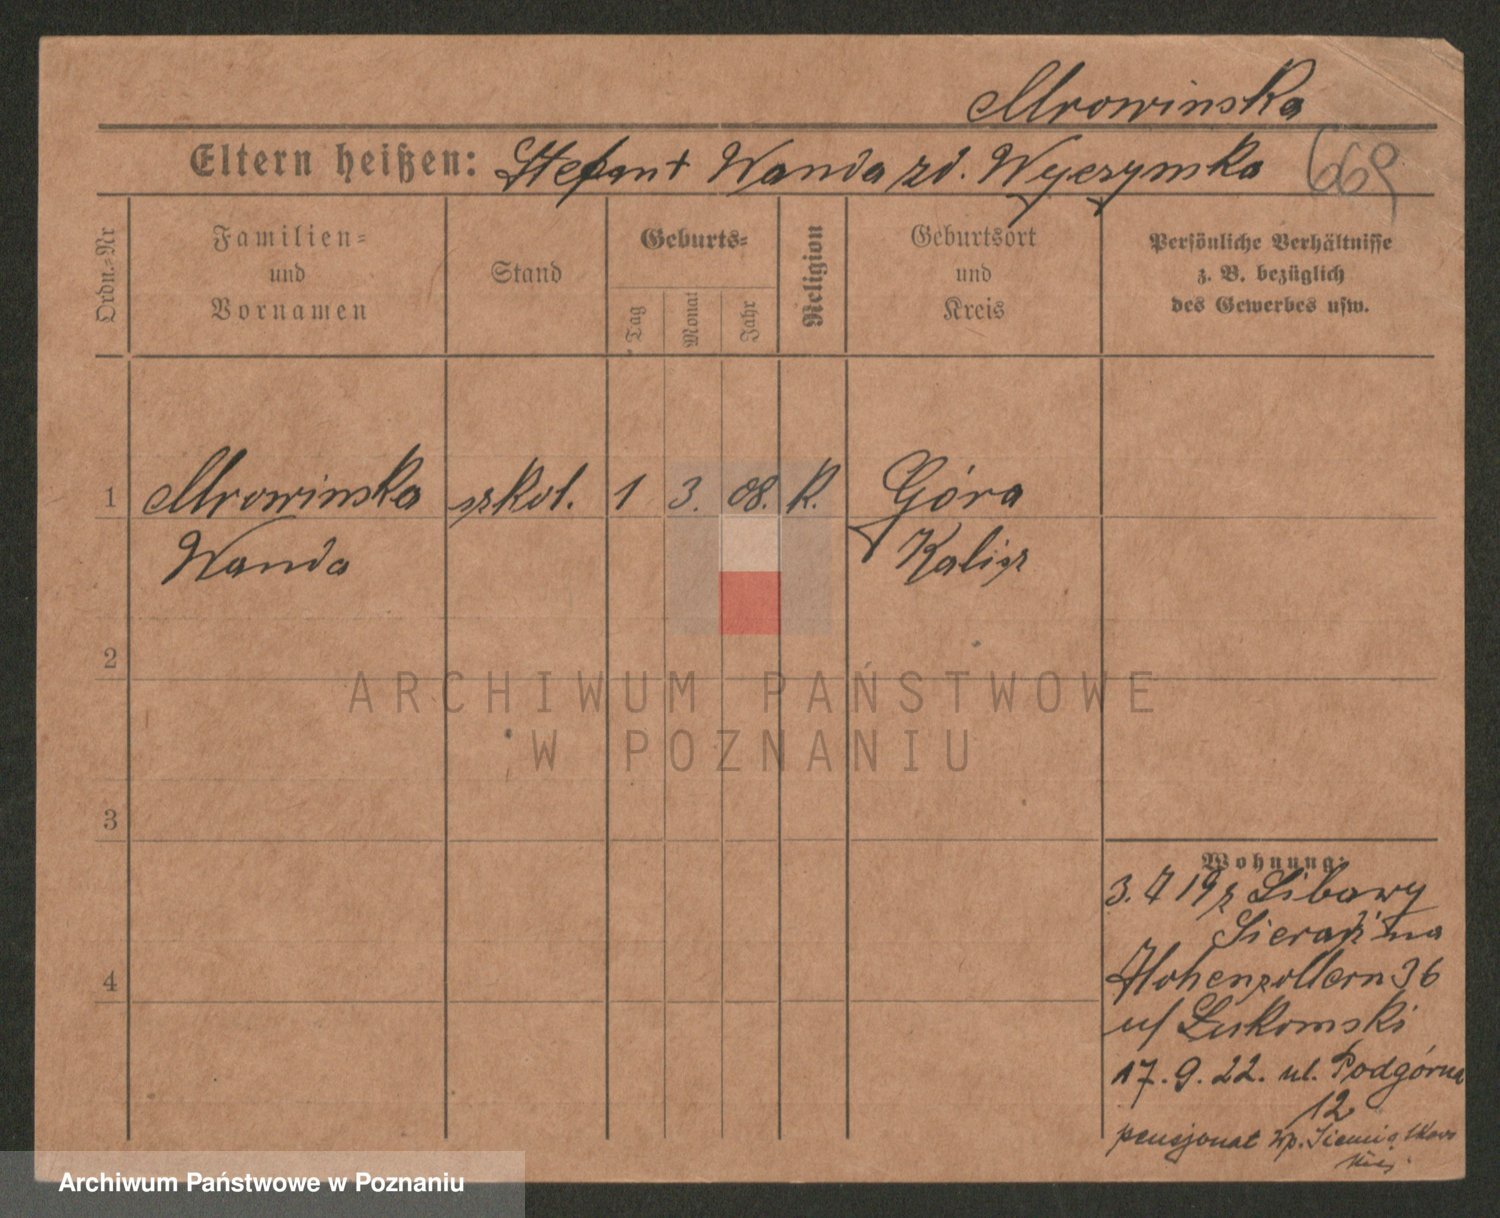 Mrowinska
Eltern heißen: Stefan + Wanda zd. Wyczynska 669
Ordn.-Nr
Familien-
und
Vornamen
Stand
Geburts-
Tag
Monat
Jahr
Religion
Geburtsort
und
Kreis
Persönliche Verhältnisse
z. B. bezüglich
des Gewerbes usw.
1 Mrowinska szkol. 1 3. 08. R. Góra
Wanda Kalisz
2
3
4
ARCHIWUM PAŃSTWOWE
W POZNANIU
Wohnung:
3. 7 19 z Libawy
Hohenzollern 36
u/ Lukomski
17. 9. 22. ul. Podgórna
12
pensjonat Wp.
Archiwum Państwowe w Poznaniu